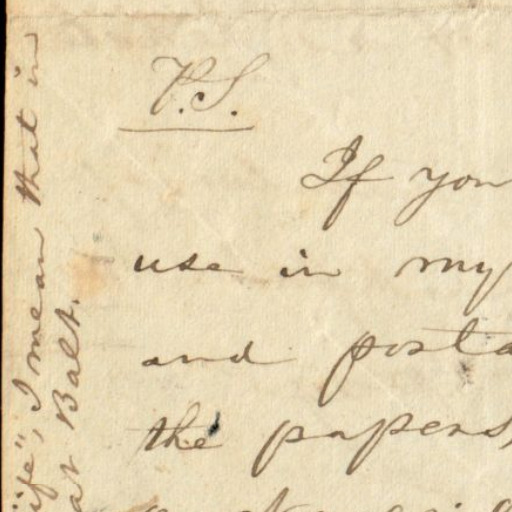 P.S.
If you
use in my
and posta
the papers
ife", I mean that in
ar Balt.